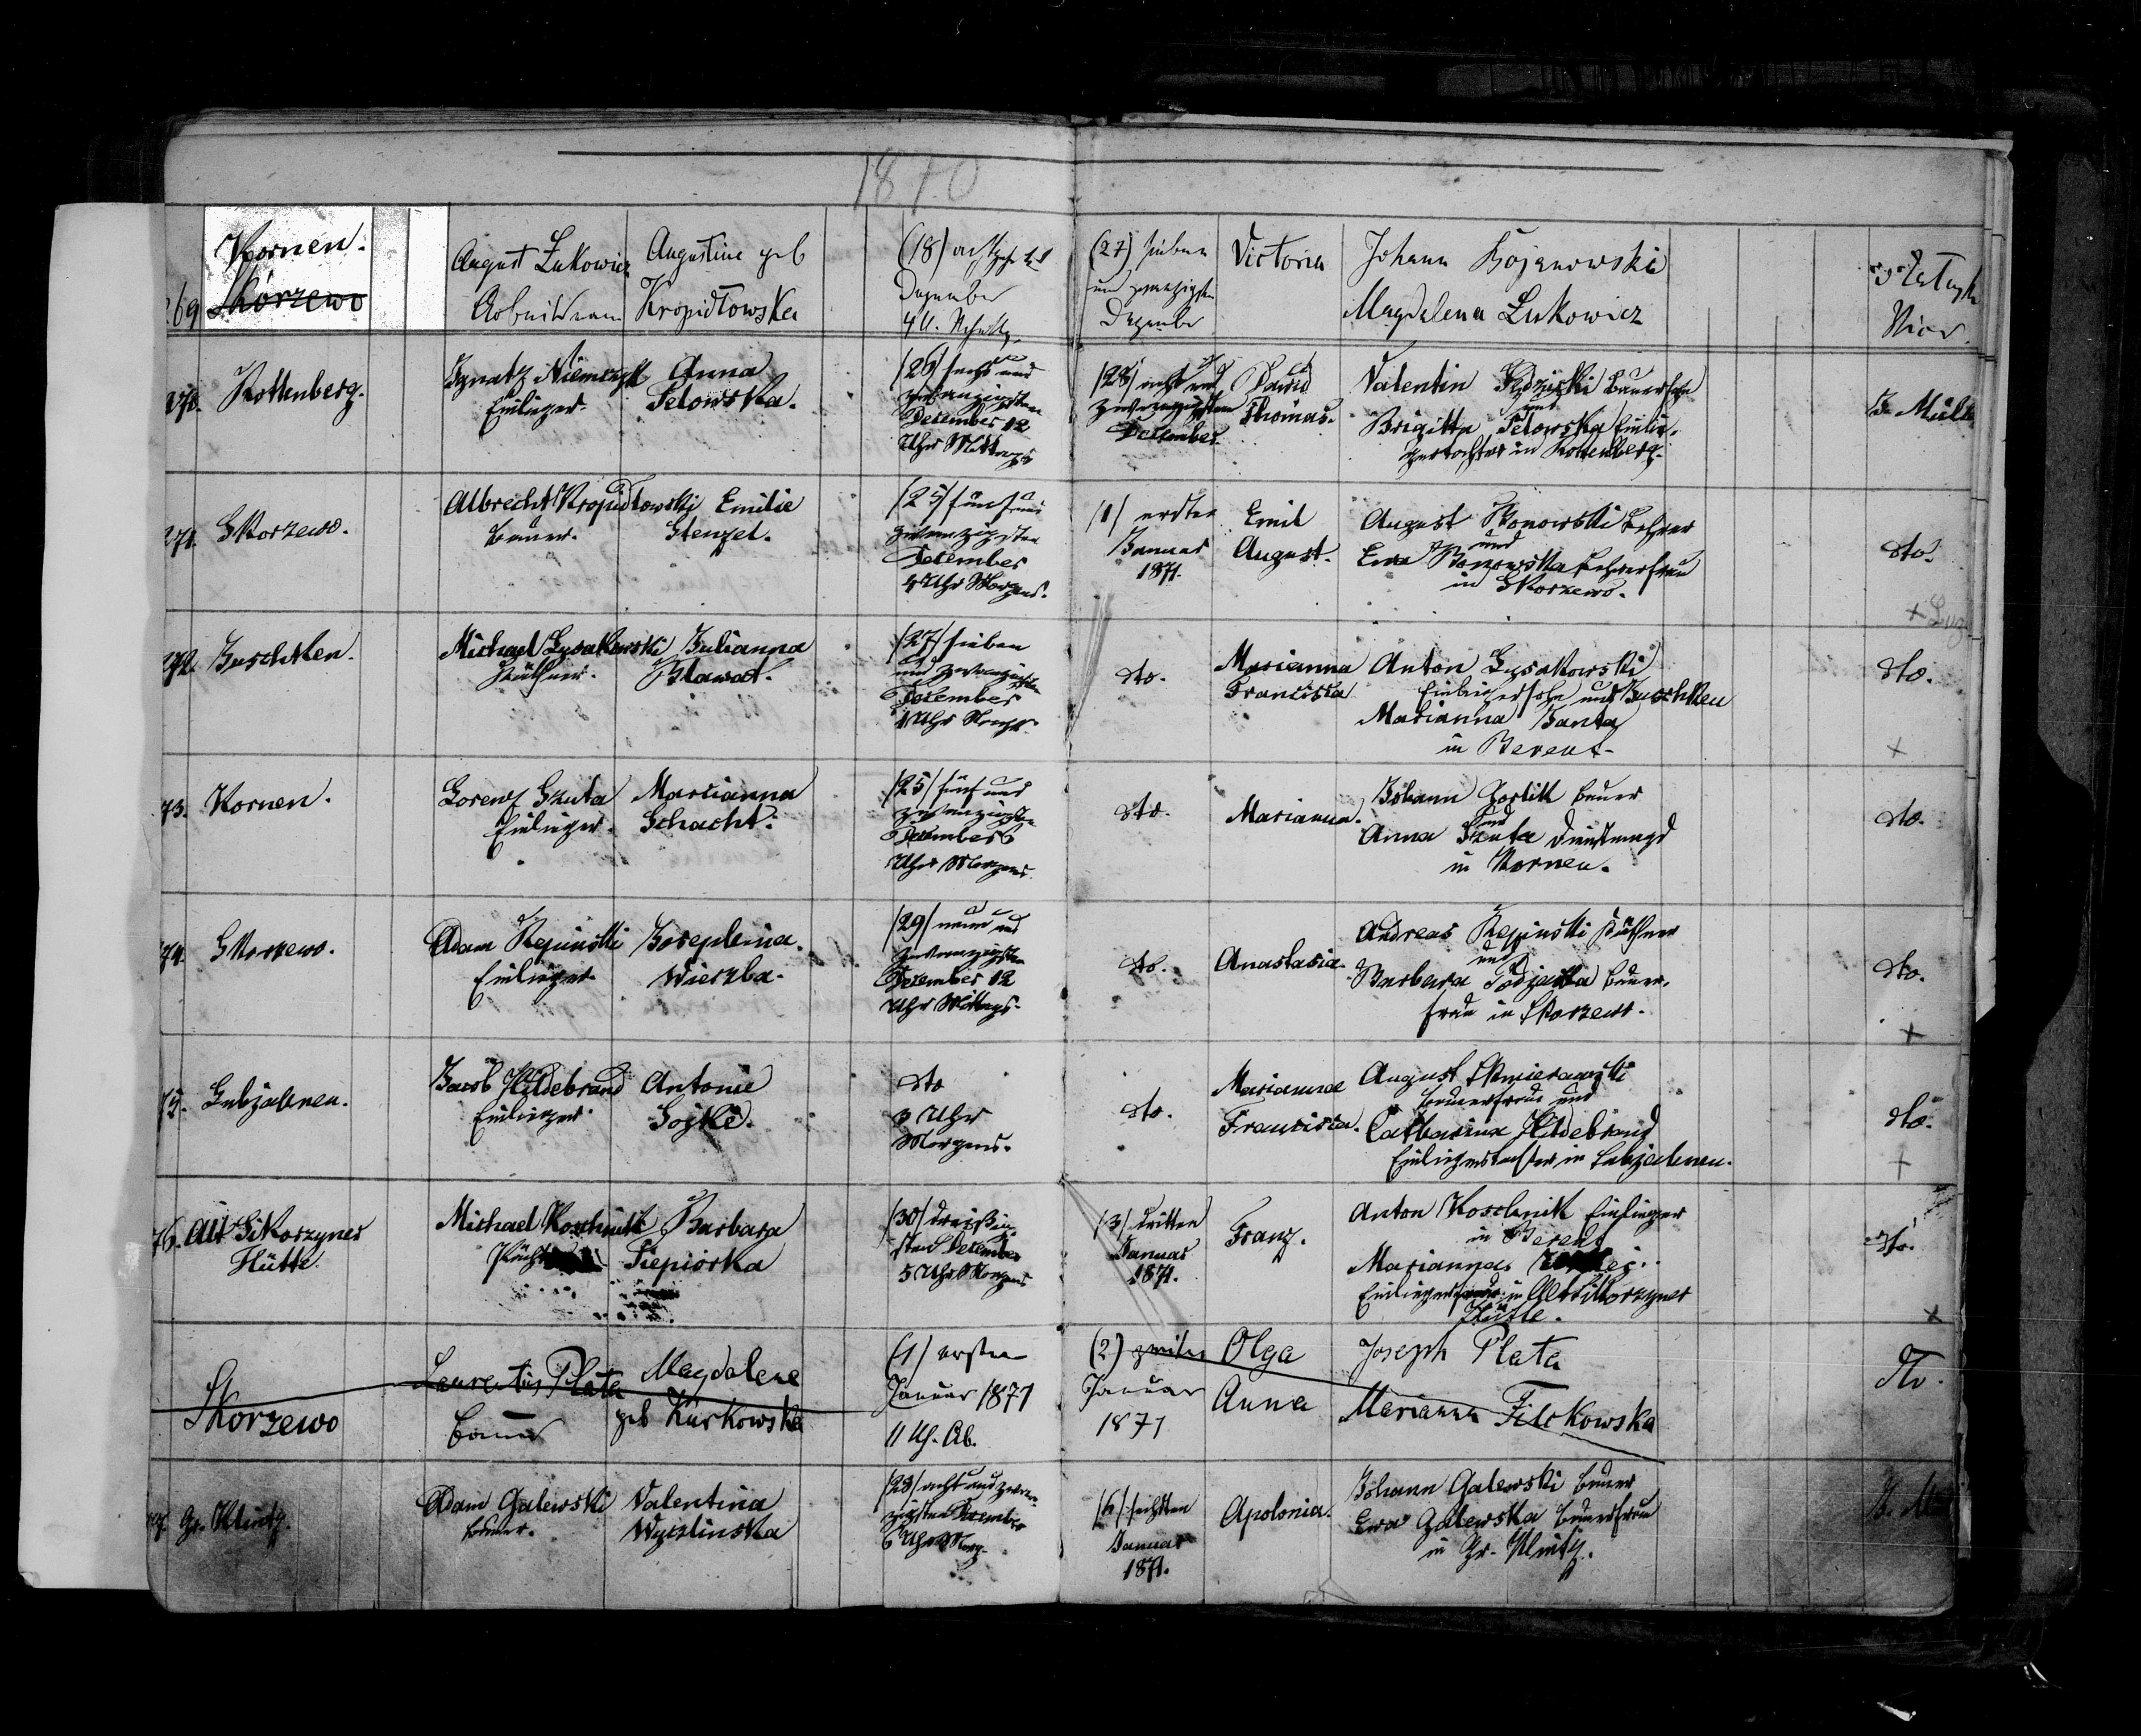 1870
269
Kornen.
Skórzewo
August Łukowicz
Arbeitsmann
Augustine geb
Kropidłowska
(18) achtzehnten
Dezember
4 U. Nachmittg.
(27) sieben
und zwanzigsten
Dezember
Victoria
Johann
Magdalena Łukowicz
Vicar.
270.
Kottenberg.
Ignatz Niemczyk
Einlieger.
Anna
Pelowska.
(26) sechs und
zwanzigsten
December 12
Uhr Mittags
(28) acht und
zwanzigsten
December.
David
Thomas.
Valentin
Bauersohn
und
Brigitta Pelowska Einlie-
gertochter in Kottenberg.
271.
Skorzewo.
Albrecht Kropidlowski
Bauer.
Emilie
Stenzel.
(25) fünf und
zwanzigsten
December
4 Uhr Morgens.
(1) ersten
Januar
1871.
Emil
August.
August Lehrer
und
Eva Lehrerfrau
in Skorzewo.
dto.
272.
Juschken.
Michael Lysakowski
Käthner.
Julianna
Blawat.
(27) sieben
und zwanzigsten
December
Uhr
dto.
Marianna
Francisca
Anton Lysakowski
Einliegersohn aus Juschken
Marianna
in Berent.
dto.
73.
Kornen.
Lorenz Skuta
Einlieger.
Marianna
Schacht.
(25) fünf und
zwanzigsten
December 6
Uhr Morgens
dto.
Marianna.
Johann Bauer
und
Anna Skuta Dienstmagd
in Kornen.
dto.
74.
Skorzewo.
Adam Repinski
Einlieger.
Josephina
Wierzba.
(29) neun und
zwanzigsten
December 12
Uhr Mittags.
dto.
Anastasia.
Andreas Repinski Käthner
und
Barbara Bauer-
frau in Skorzewo.
dto.
75.
Lubjahnen.
Jacob Hildebrand
Einlieger.
Antonie
Soyke.
dto
3 Uhr
Morgens.
dto.
Marianna
Francisca.
August
Bauersohn und
Catharina Hildebrand
Einliegertochter in Lubjahnen.
dto.
76.
Alt Sikorzyner
Hütte.
Michael Koschnik
Barbara
Piepiorka
(30) dreißig-
sten December
5 Uhr Morgens
(3) dritten
Januar
1871.
Franz.
Anton Koschnik Einlieger
in Berent
Marianna
in Alt Sikorzyner
Hütte.
dto.
Skorzewo
Laurentius Plata
Bauer
Magdalene
geb Kurkowska
(1) ersten
Januar 1871
11 Uh. Ab.
(2) zweiten
Januar
1871
Olga
Anna
Joseph Plata
Marianna Filckowska
dto.
Gr. Klintz.
Adam Galewski
Bauer.
Valentina
(28) acht und zwan-
zigsten December
6 Uhr Morg.
(6) sechsten
Januar
1871.
Apolonia.
Johann Galewski Bauer
Ewa Galewska Bauerfrau
in Gr. Klintz.